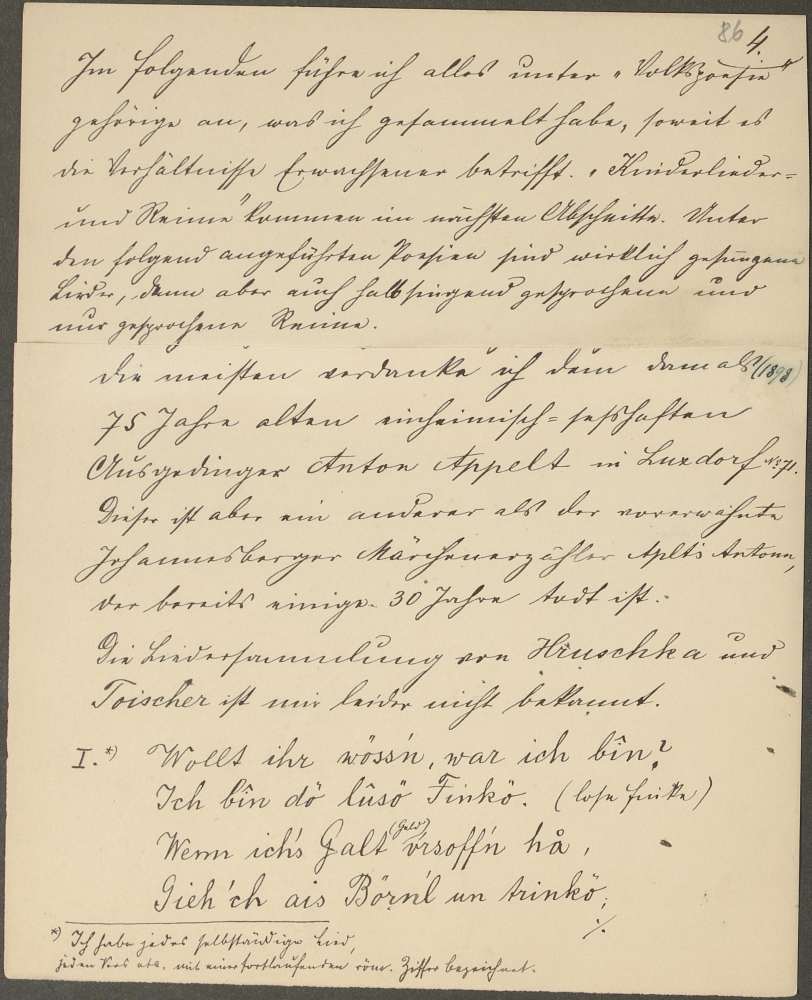 86 4.
Im folgenden führe ich alles unter „Volkspoesie"
gehörige an, was ich gesammelt habe, soweit es
die Verhältnisse Erwachsener betrifft. „Kinderlieder=
und Reime" kommen im nächsten Abschnitte. Unter
den folgend angeführten Poesien sind wirklich gesungene
Lieder, dann aber auch halbsingend gesprochene und
nur gesprochene Reime.
Die meisten verdanke ich dem damals (1898)
75 Jahre alten einheimisch=sesshaften
Ausgedinger Anton Appelt in Luxdorf No. 71.
Dieser ist aber ein anderer als der vorerwähnte
Johannesberger Märchenerzähler Aplt's Antonn,
der bereits einige 30 Jahre todt ist.
Die Liedersammlung von Hruschka und
Toischer ist mir leider nicht bekannt.
I. *) Wollt ihr wöss'n, war ich bîn?
Ich bîn dö lûsö Finkö. (lose Finke)
Wenn ich's Galt (Geld) vrsoff'n hå,
Gieh'ch ais Börn'l un trinkö;
*) Ich habe jedes selbständige Lied,
jeden Vers etc. mit einer fortlaufenden röm. Ziffer bezeichnet.
./.